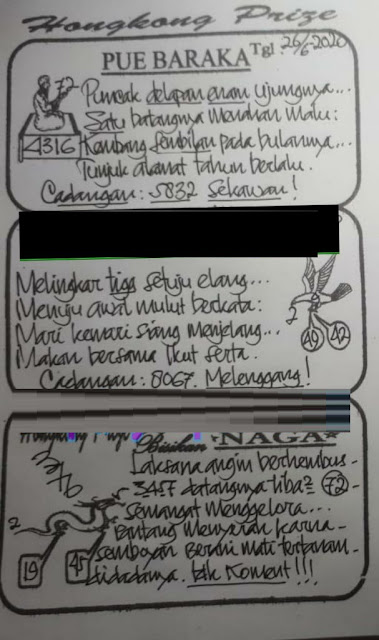 Hongkong Prize
PUE BARAKA Tgl: 26/6-2020
72
Puncak delapan enam ujungnya...
Satu batangnya Menahan Malu:
4316 Kembang Sembilan pada bulannya...
Tunjuk alamat tahun berlalu.
Cadangan: 5832 Sekawan!
Melingkar tiga setuju elang...
Menuju awal mulut berkata:
2
49 42
Mari kemari siang menjelang...
Makan bersama ikut serta.
Cadangan: 8067. Melenggang!
Bisikan *NAGA*
Laksana angin berhembus-
3457 datangnya tiba2 72-
Semangat Menggelora...
2
Pantang Menyerah karna-
19 45
Semboyan Berani mati tertanam-
didadanya. tak Koment!!!